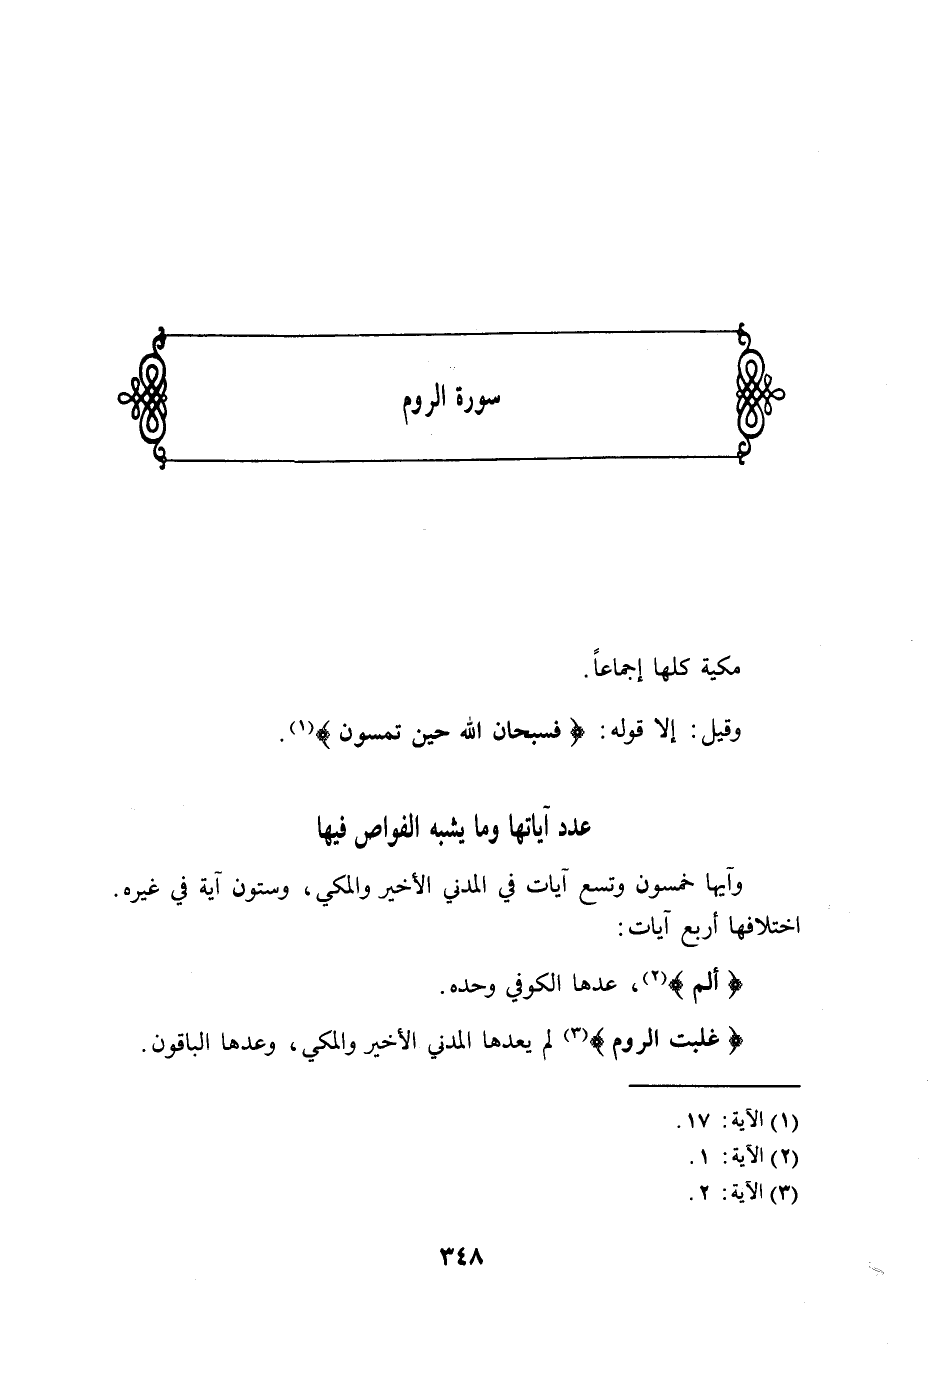 سورة الروم
مكية كلها إجماعاً.
وقيل: إلا قوله: ﴿ فسبحان الله حين تمسون ﴾(١).
عدد آياتها وما يشبه الفواص فيها
وآيها خمسون وتسع آيات في المدني الأخير والمكي، وستون آية في غيره.
اختلافها أربع آيات:
﴿ ألم ﴾(٢)، عدها الكوفي وحده.
﴿ غلبت الروم ﴾(٣) لم يعدها المدني الأخير والمكي، وعدها الباقون.
(١) الآية: ١٧.
(٢) الآية: ١.
(٣) الآية: ٢.
٣٤٨